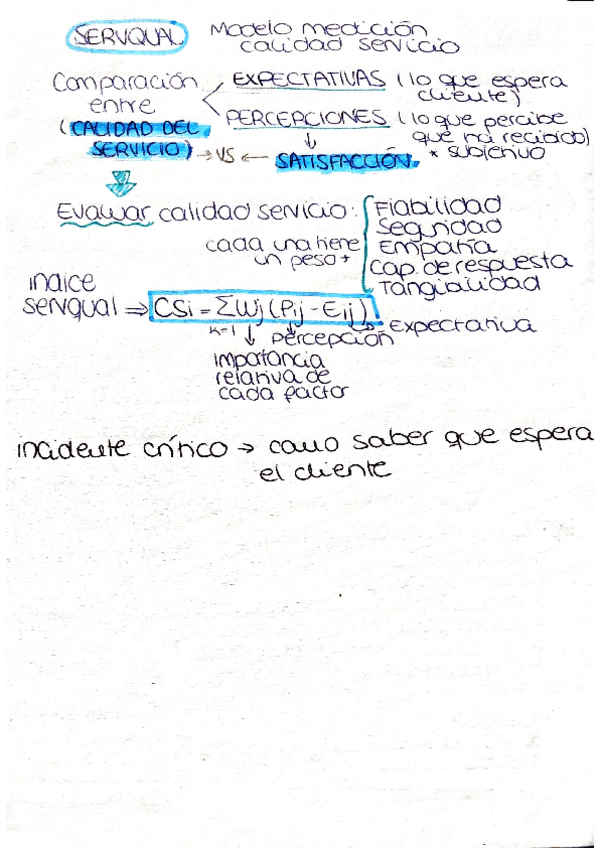 SERVQUAL Modelo medición
calidad servicio
Comparación
entre
EXPECTATIVAS (lo que espera
cliente)
PERCEPCIONES (lo que percibe
que ha recibido)
* subjetivo
(CALIDAD DEL
SERVICIO) → VS ← SATISFACCIÓN.
Evaluar calidad servicio:
cada una tiene
un peso +
Fiabilidad
Seguridad
Empatía
Cap. de respuesta
Tangibilidad
indice
servqual ⇒ CSi = ΣWj (Pij - Eij)
k=1
Percepción
Expectativa
importancia
relativa de
cada factor
incidente crítico → como saber que espera
el cliente